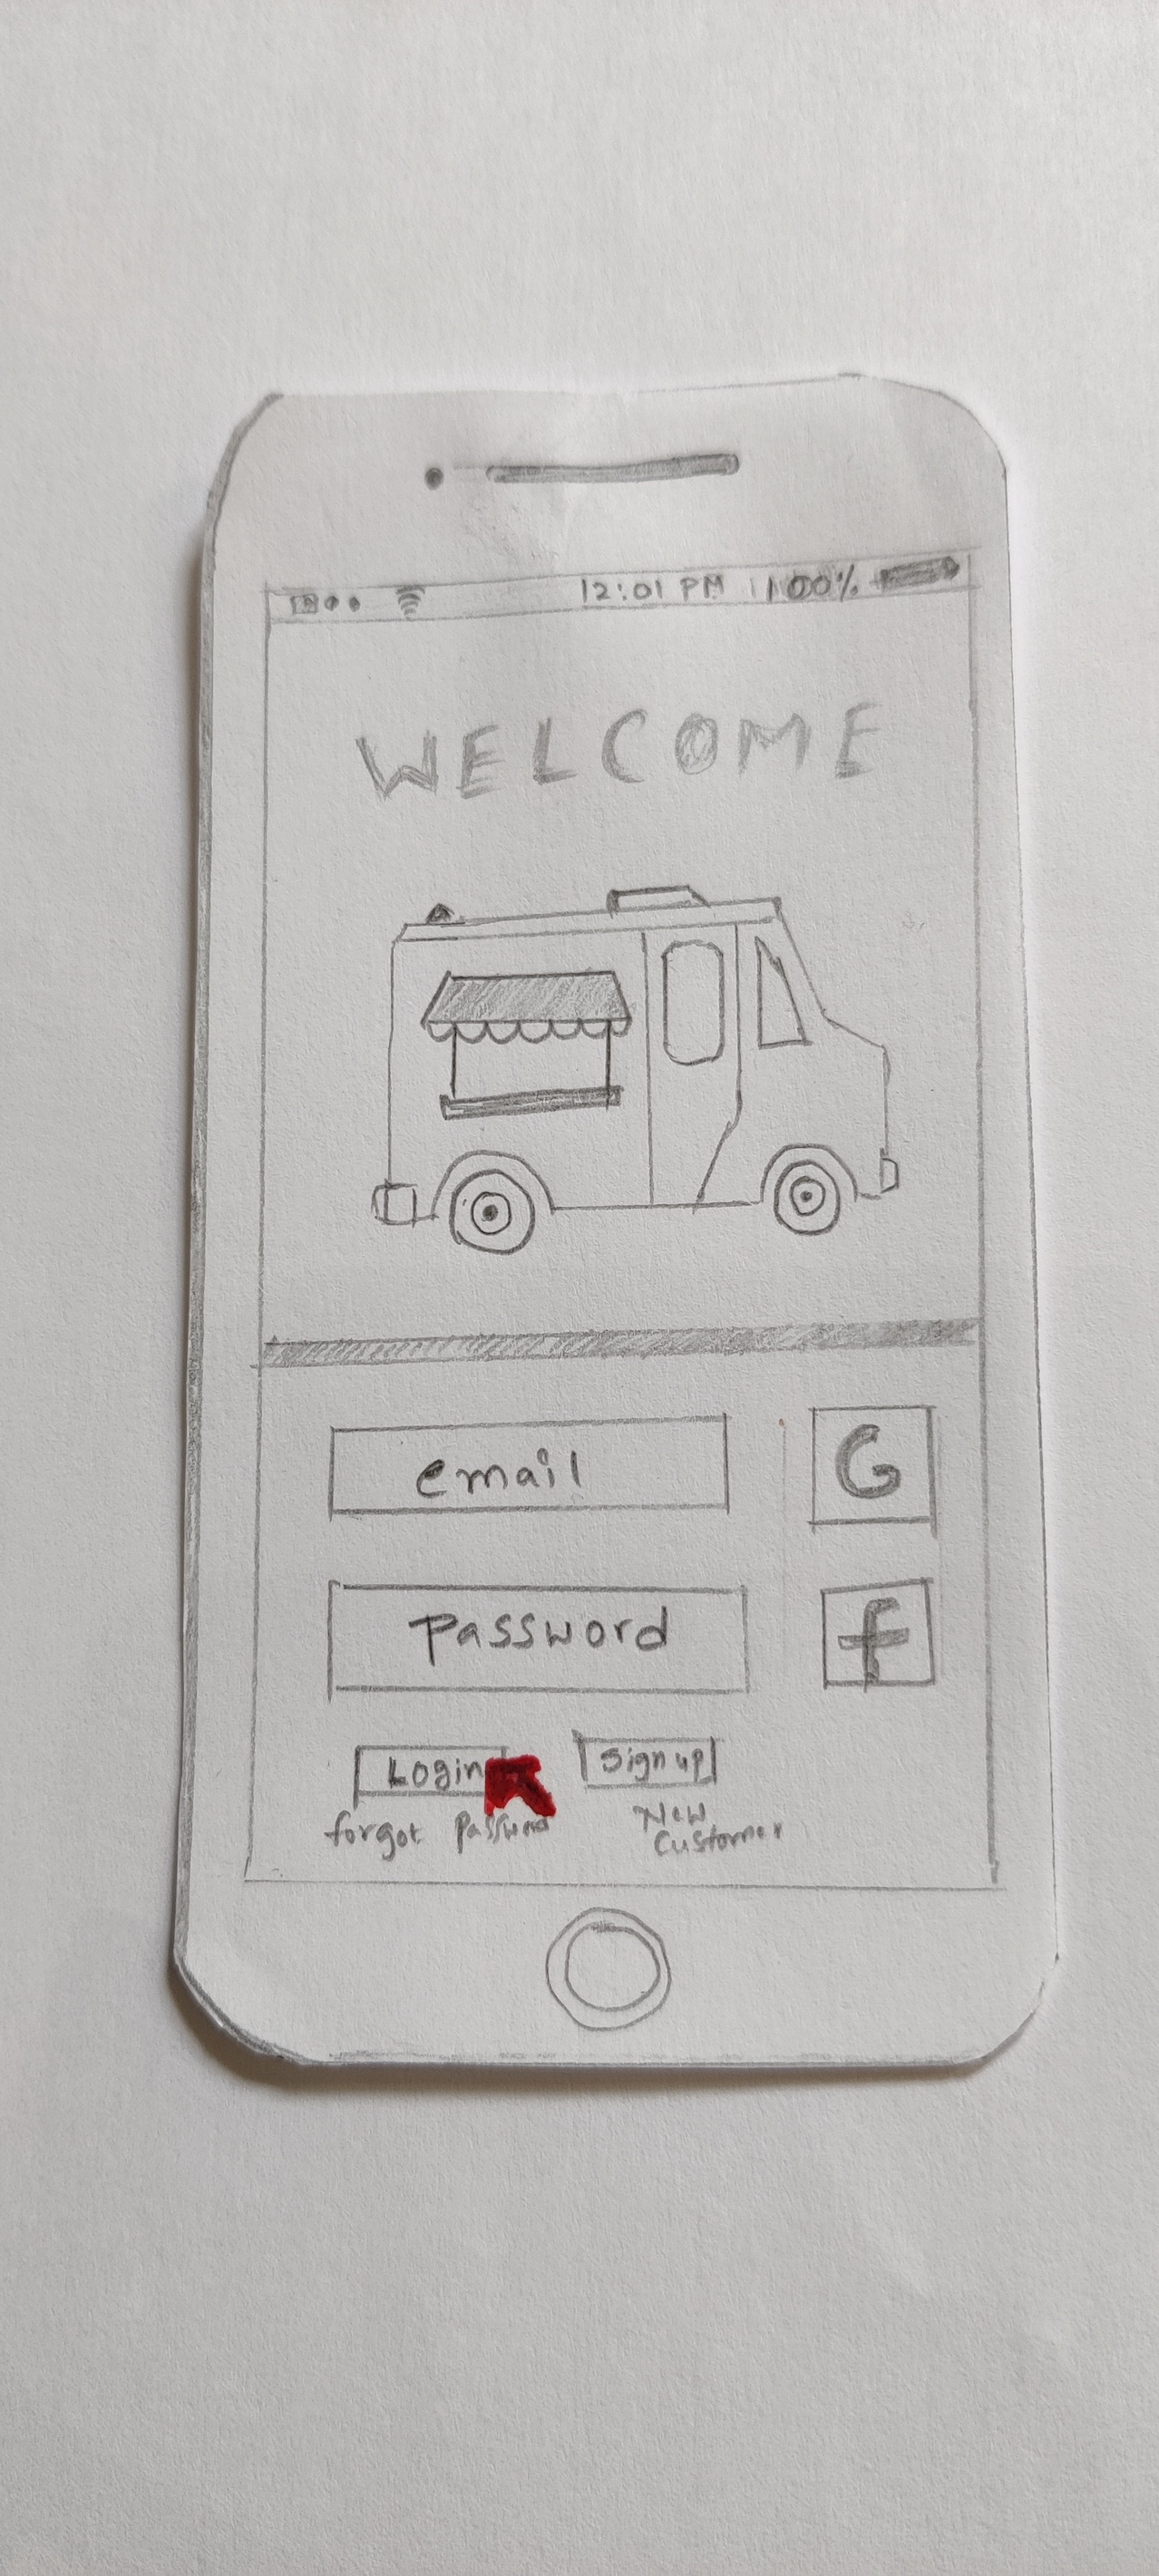 12:01 PM 100%
WELCOME
email
G
Password
f
Login
Sign up
forgot Password
New
Customer